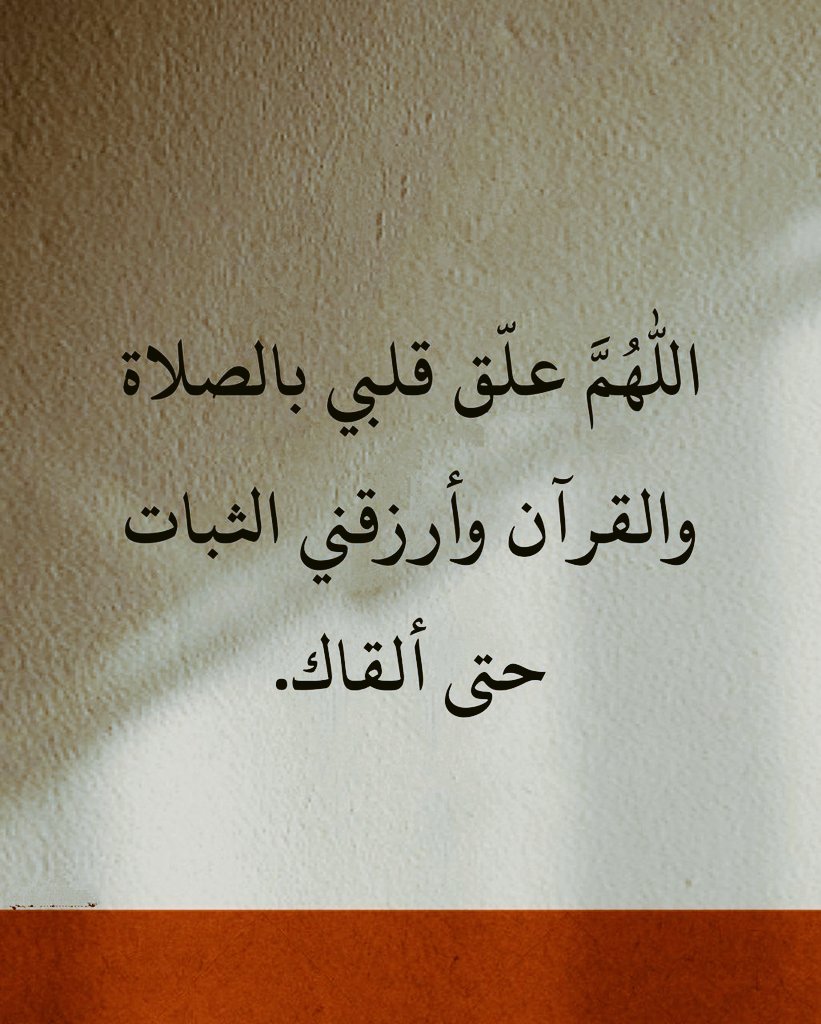 اللّٰهُمَّ علّق قلبي بالصلاة
والقرآن وأرزقني الثبات
حتى ألقاك.